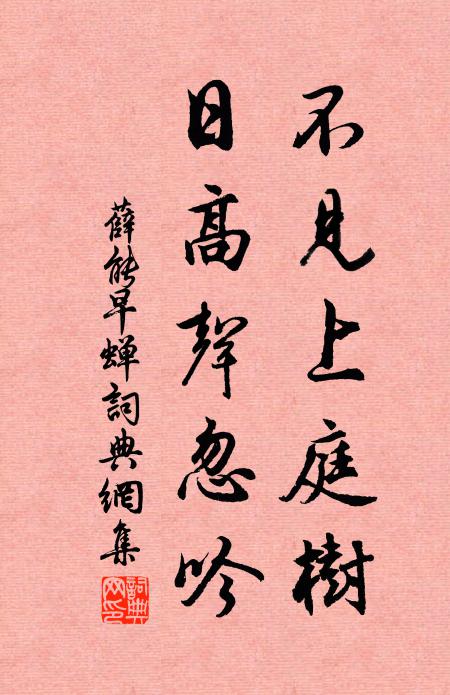 不見上庭樹
日高聲忽吟
薛能早蟬詞典網集
詞典网印